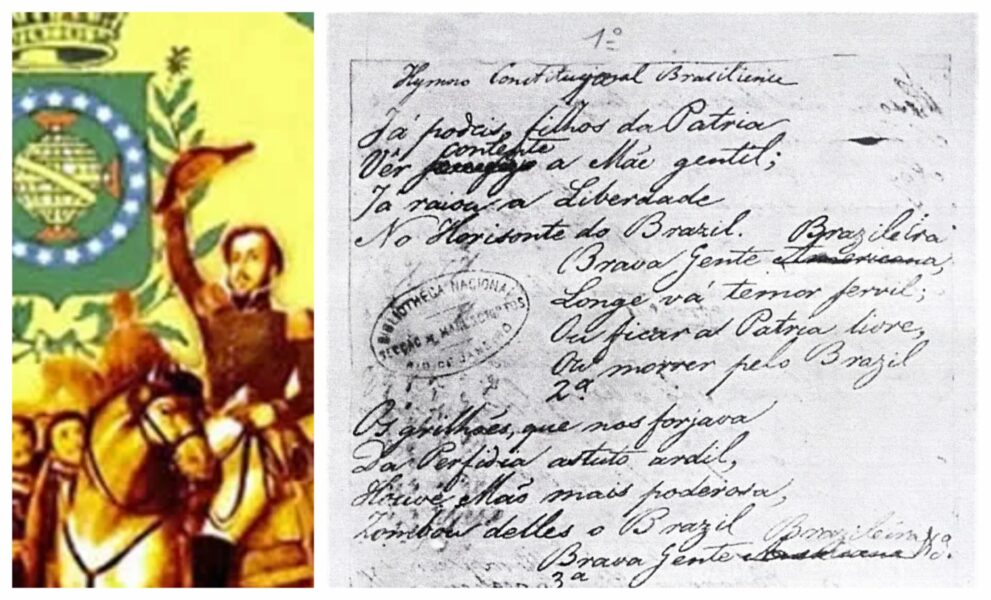 1º
Hymno Constitucional Brasiliense
Já podeis, filhos da Patria
contente
Vêr a Mãe gentil;
Ja raiou a Liberdade
No Horisonte do Brazil.
Brazileira
Brava Gente Americana,
Longe vá temor servil;
Ou ficar a Patria livre,
Ou morrer pelo Brazil
BIBLIOTHECA NACIONAL
RIO DE JANEIRO
2ª
Os grilhões, que nos forjava
Da Perfidia astuto ardil,
Houve Mão mais poderosa,
Zombou delles o Brazil
Brazileira
Brava Gente Americana
3ª